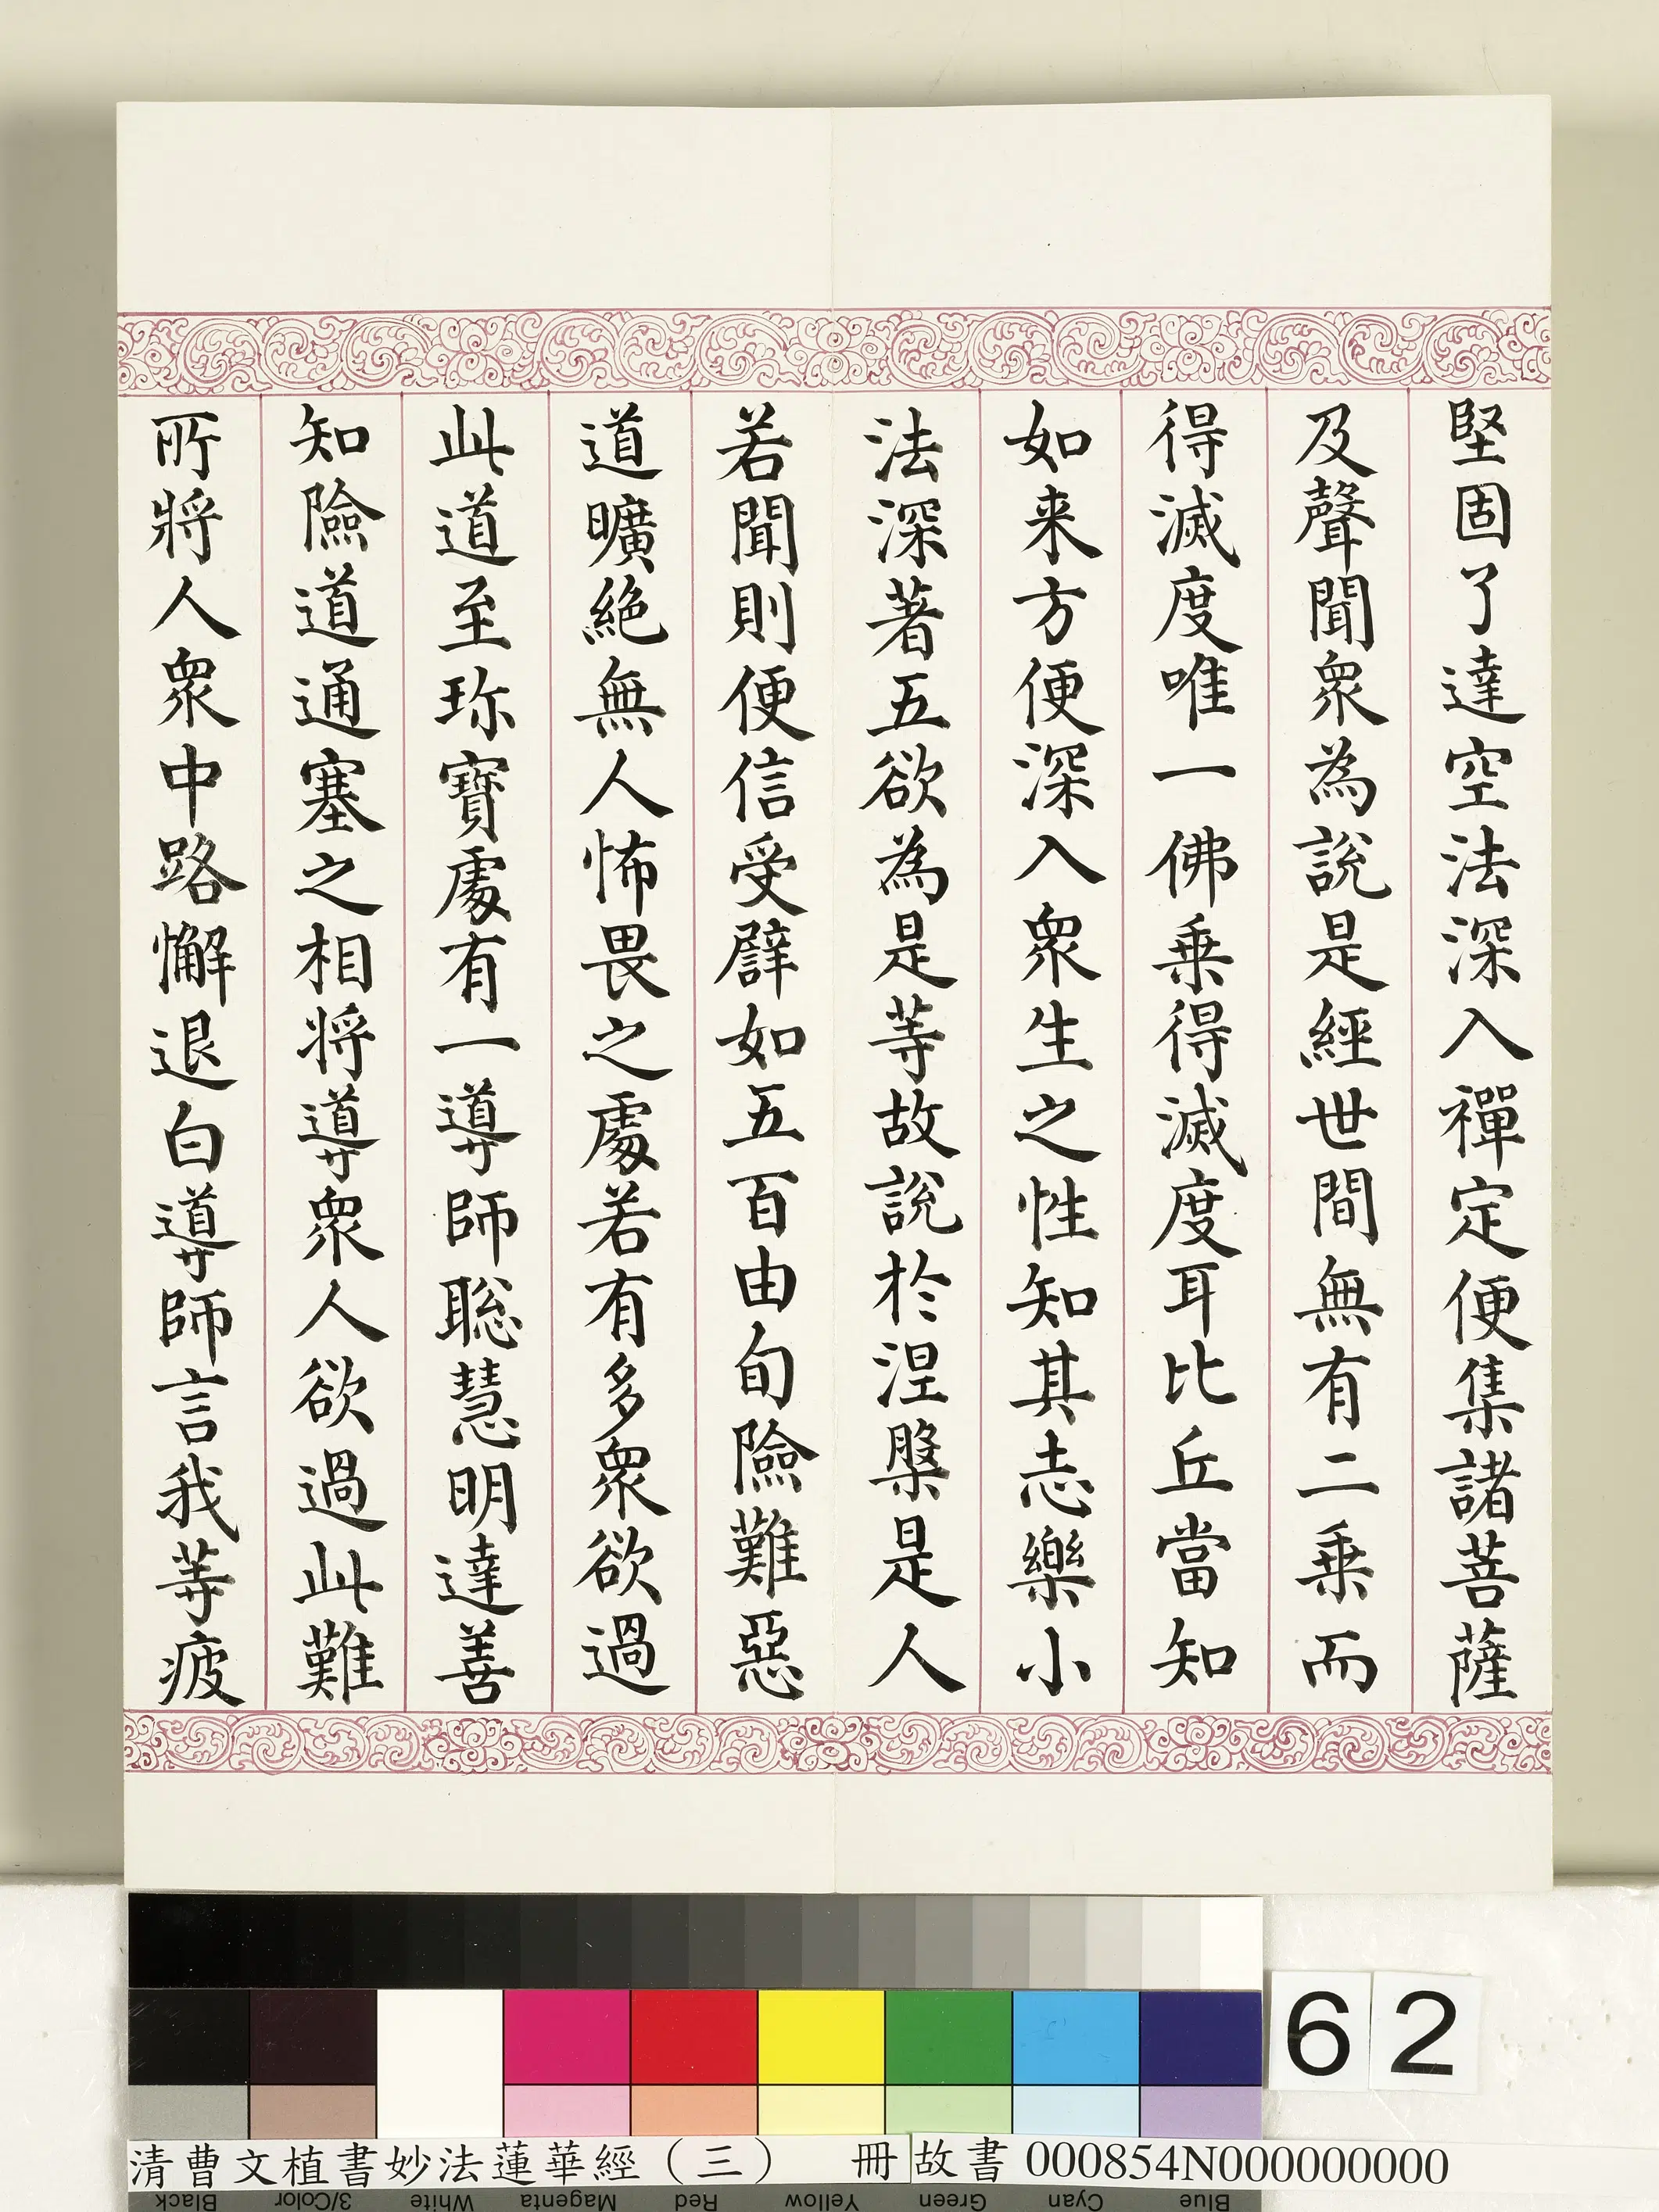 堅固了達空法深入禪定便集諸菩薩
及聲聞衆為說是經世間無有二乗而
得滅度唯一佛乗得滅度耳比丘當知
如来方便深入衆生之性知其志樂小
法深著五欲為是等故說於涅槃是人
若聞則便信受譬如五百由旬險難惡
道曠絕無人怖畏之處若有多衆欲過
此道至珎寶處有一導師聡慧明達善
知險道通塞之相将導衆人欲過此難
所將人衆中路懈退白導師言我等疲
62
清曹文植書妙法蓮華經（三） 冊 故書 000854N000000000
Black 3/Color White Magenta Red Yellow Green Cyan Blue